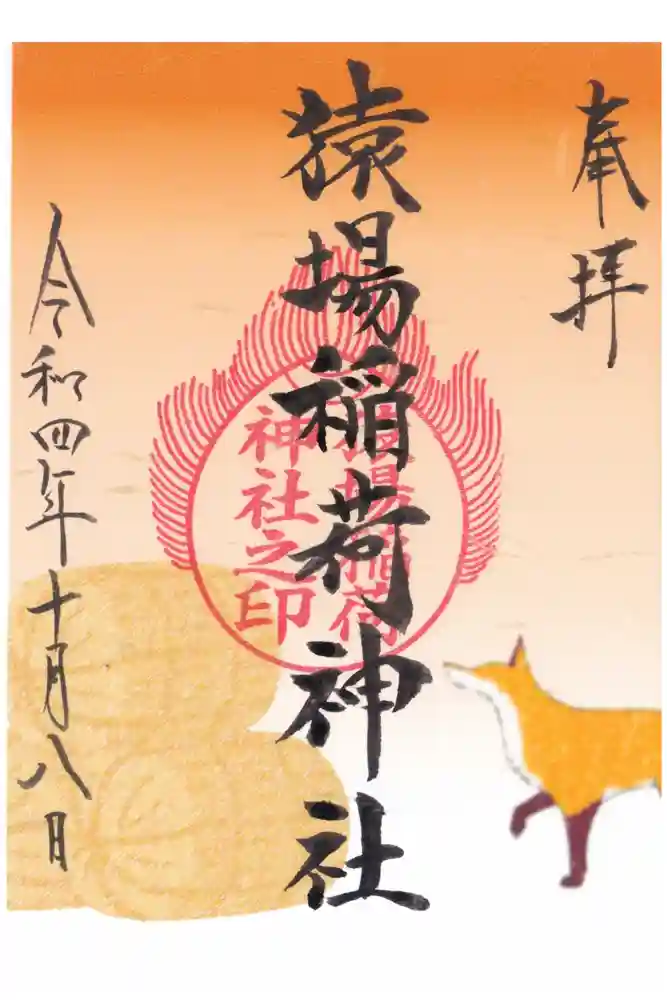 奉拝
猿場稲荷神社
猿場稲荷
神社之印
令和四年十月八日